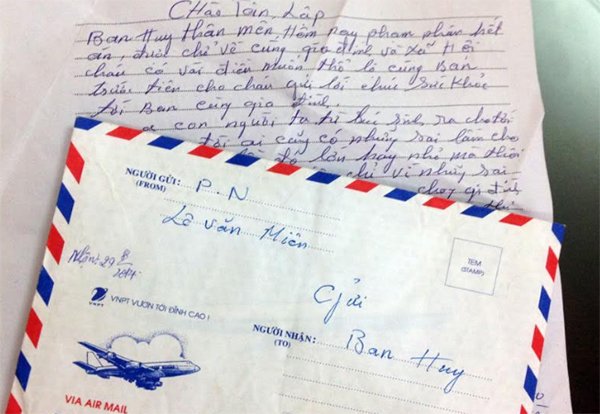 Chào Tân Lập
Ban Huy thân mến, Hôm nay phạm phân hết
án, được chở về cùng gia đình và xã Hội
cháu có vài điều muốn thổ lộ cùng Ban
trước tiên cho cháu gửi lời chúc sức khỏe
tới Ban cùng gia đình.
con người ta từ lúc sinh ra cho tới
ai cũng có những sai lầm cho
lớn hay nhỏ mà thôi
chỉ vì những sai
gia đình
NGƯỜI GỬI: P.N
(FROM)
Lê Văn Miên
TEM
(STAMP)
Nhận: 29/8/2014
VNPT
VNPT VƯƠN TỚI ĐỈNH CAO !
Gửi
NGƯỜI NHẬN: Ban Huy
(TO)
VIA AIR MAIL